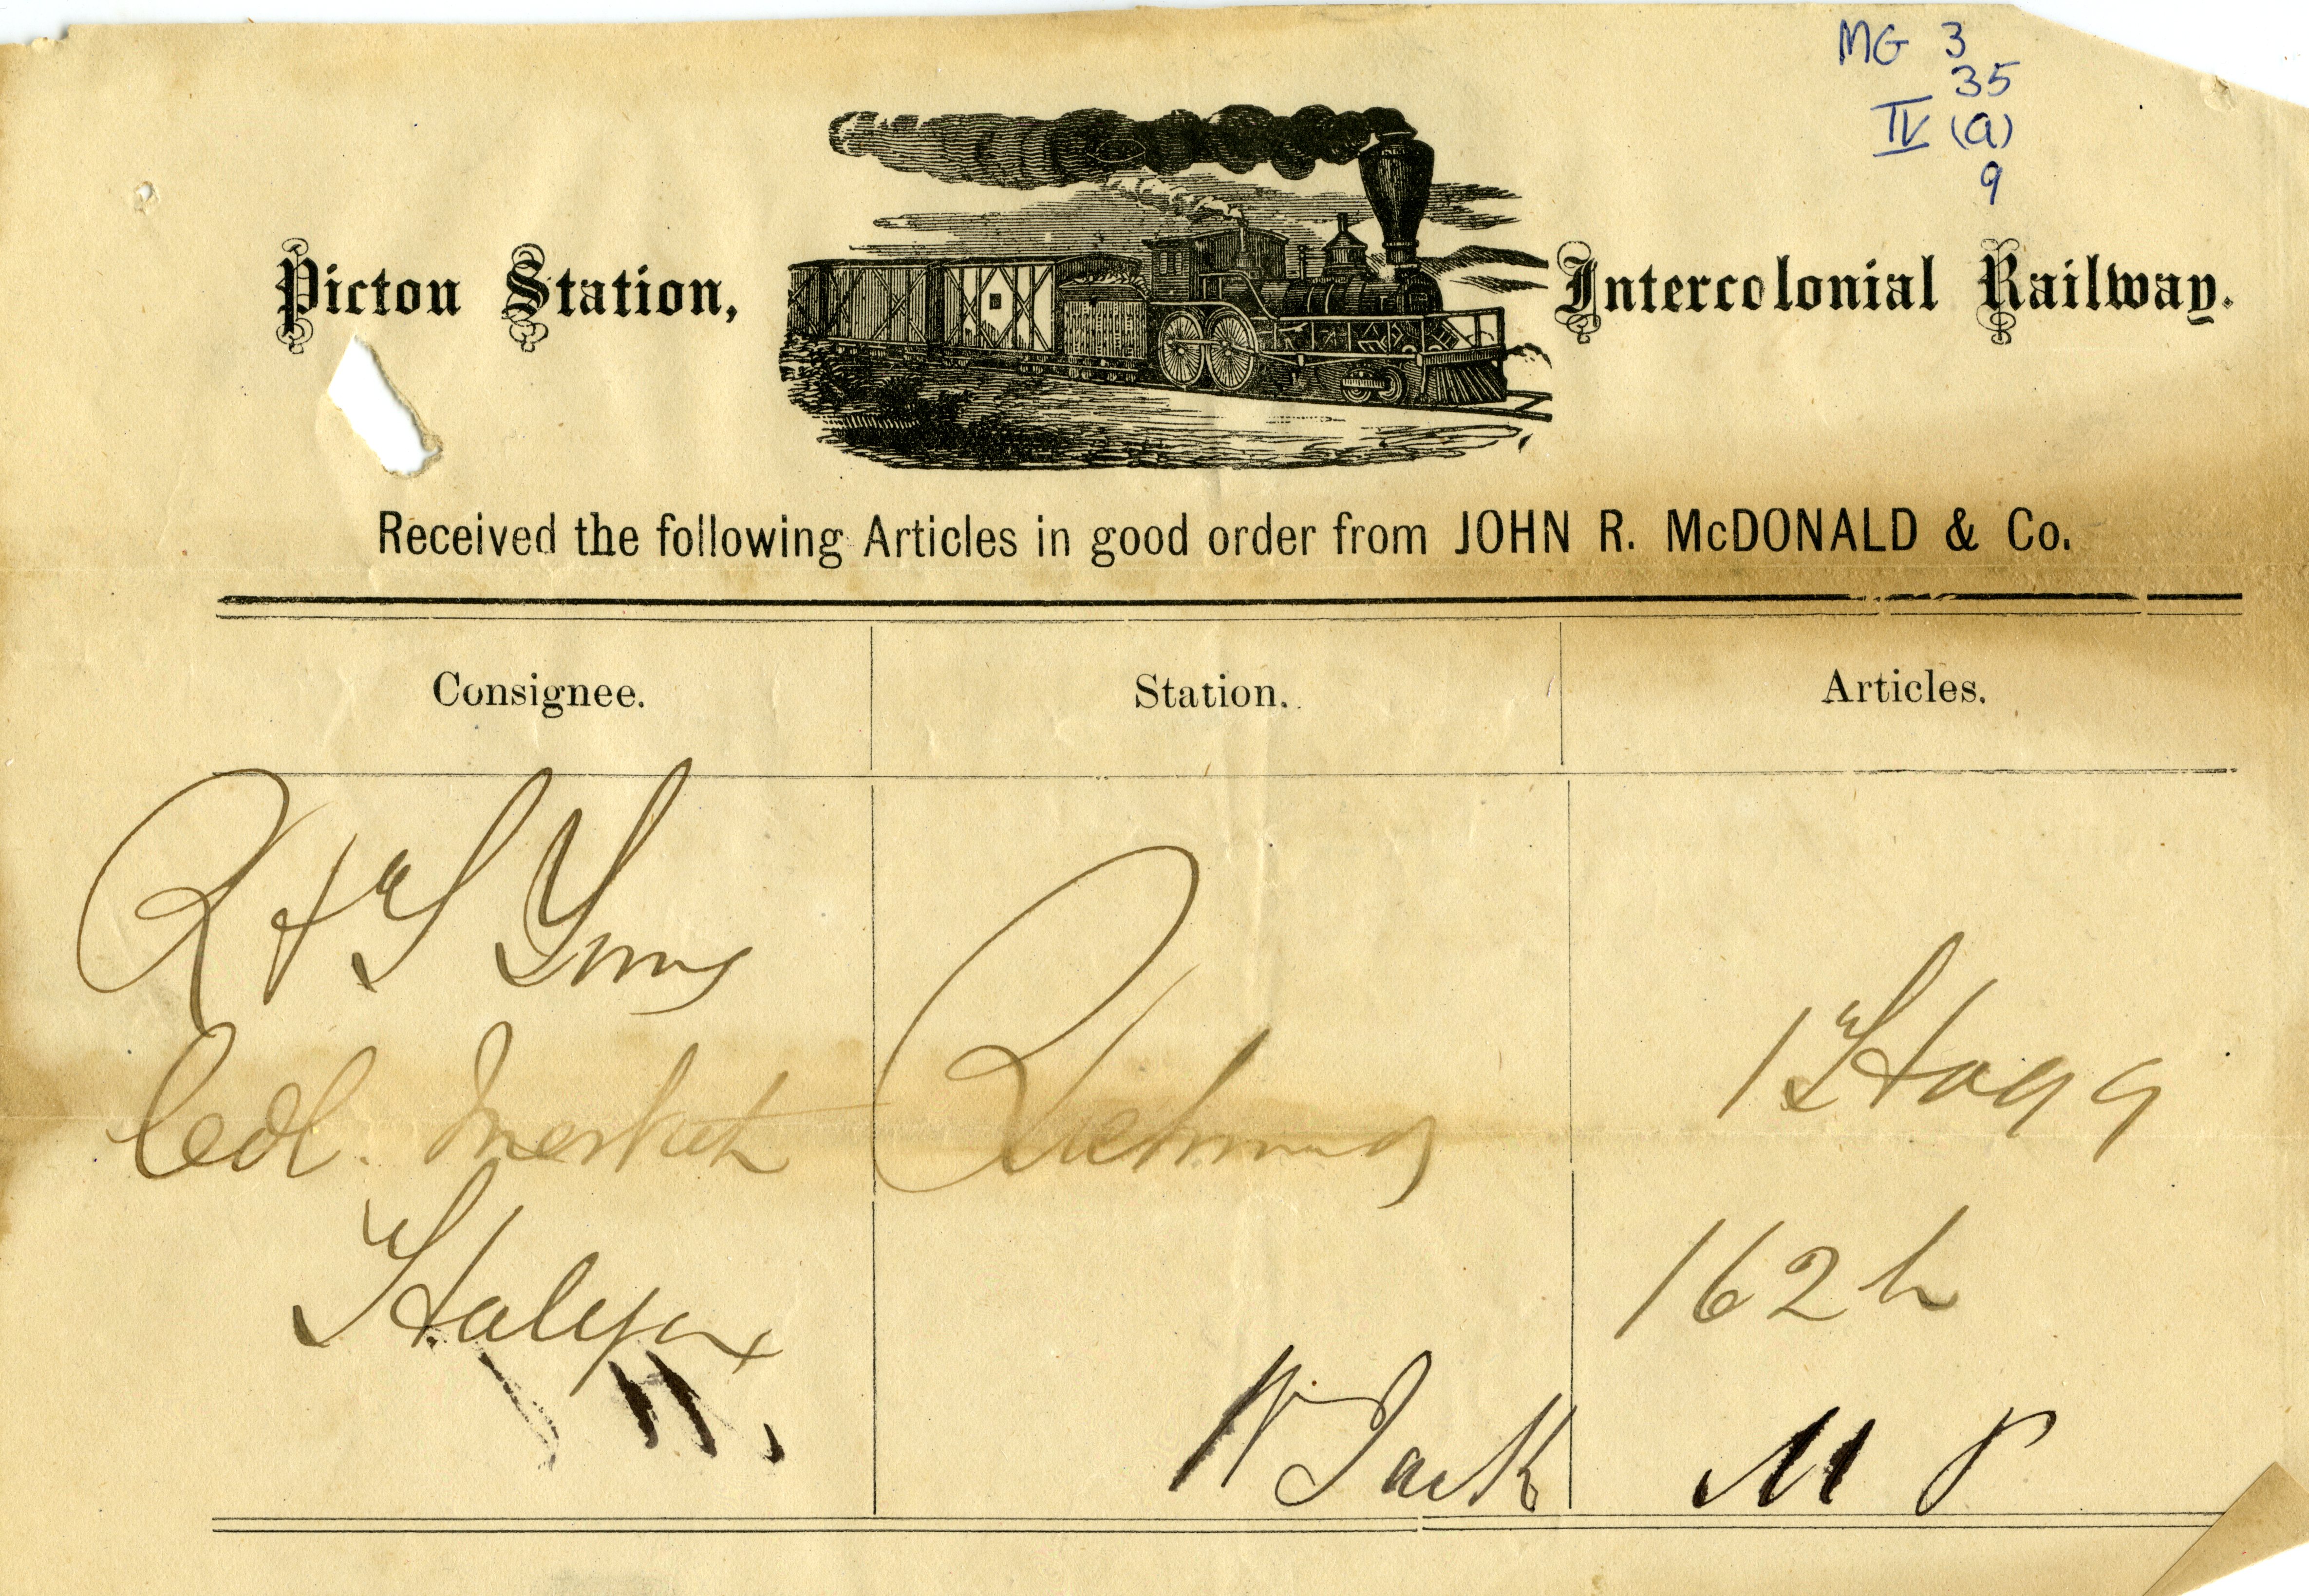 MG 3
35
IV (a)
9
Pictou Station, Intercolonial Railway.
Received the following Articles in good order from JOHN R. McDONALD & Co.
Consignee. Station. Articles.
R H
Col. Market Richmond 1 Hogg
Halifax 162 h
W Jack M P